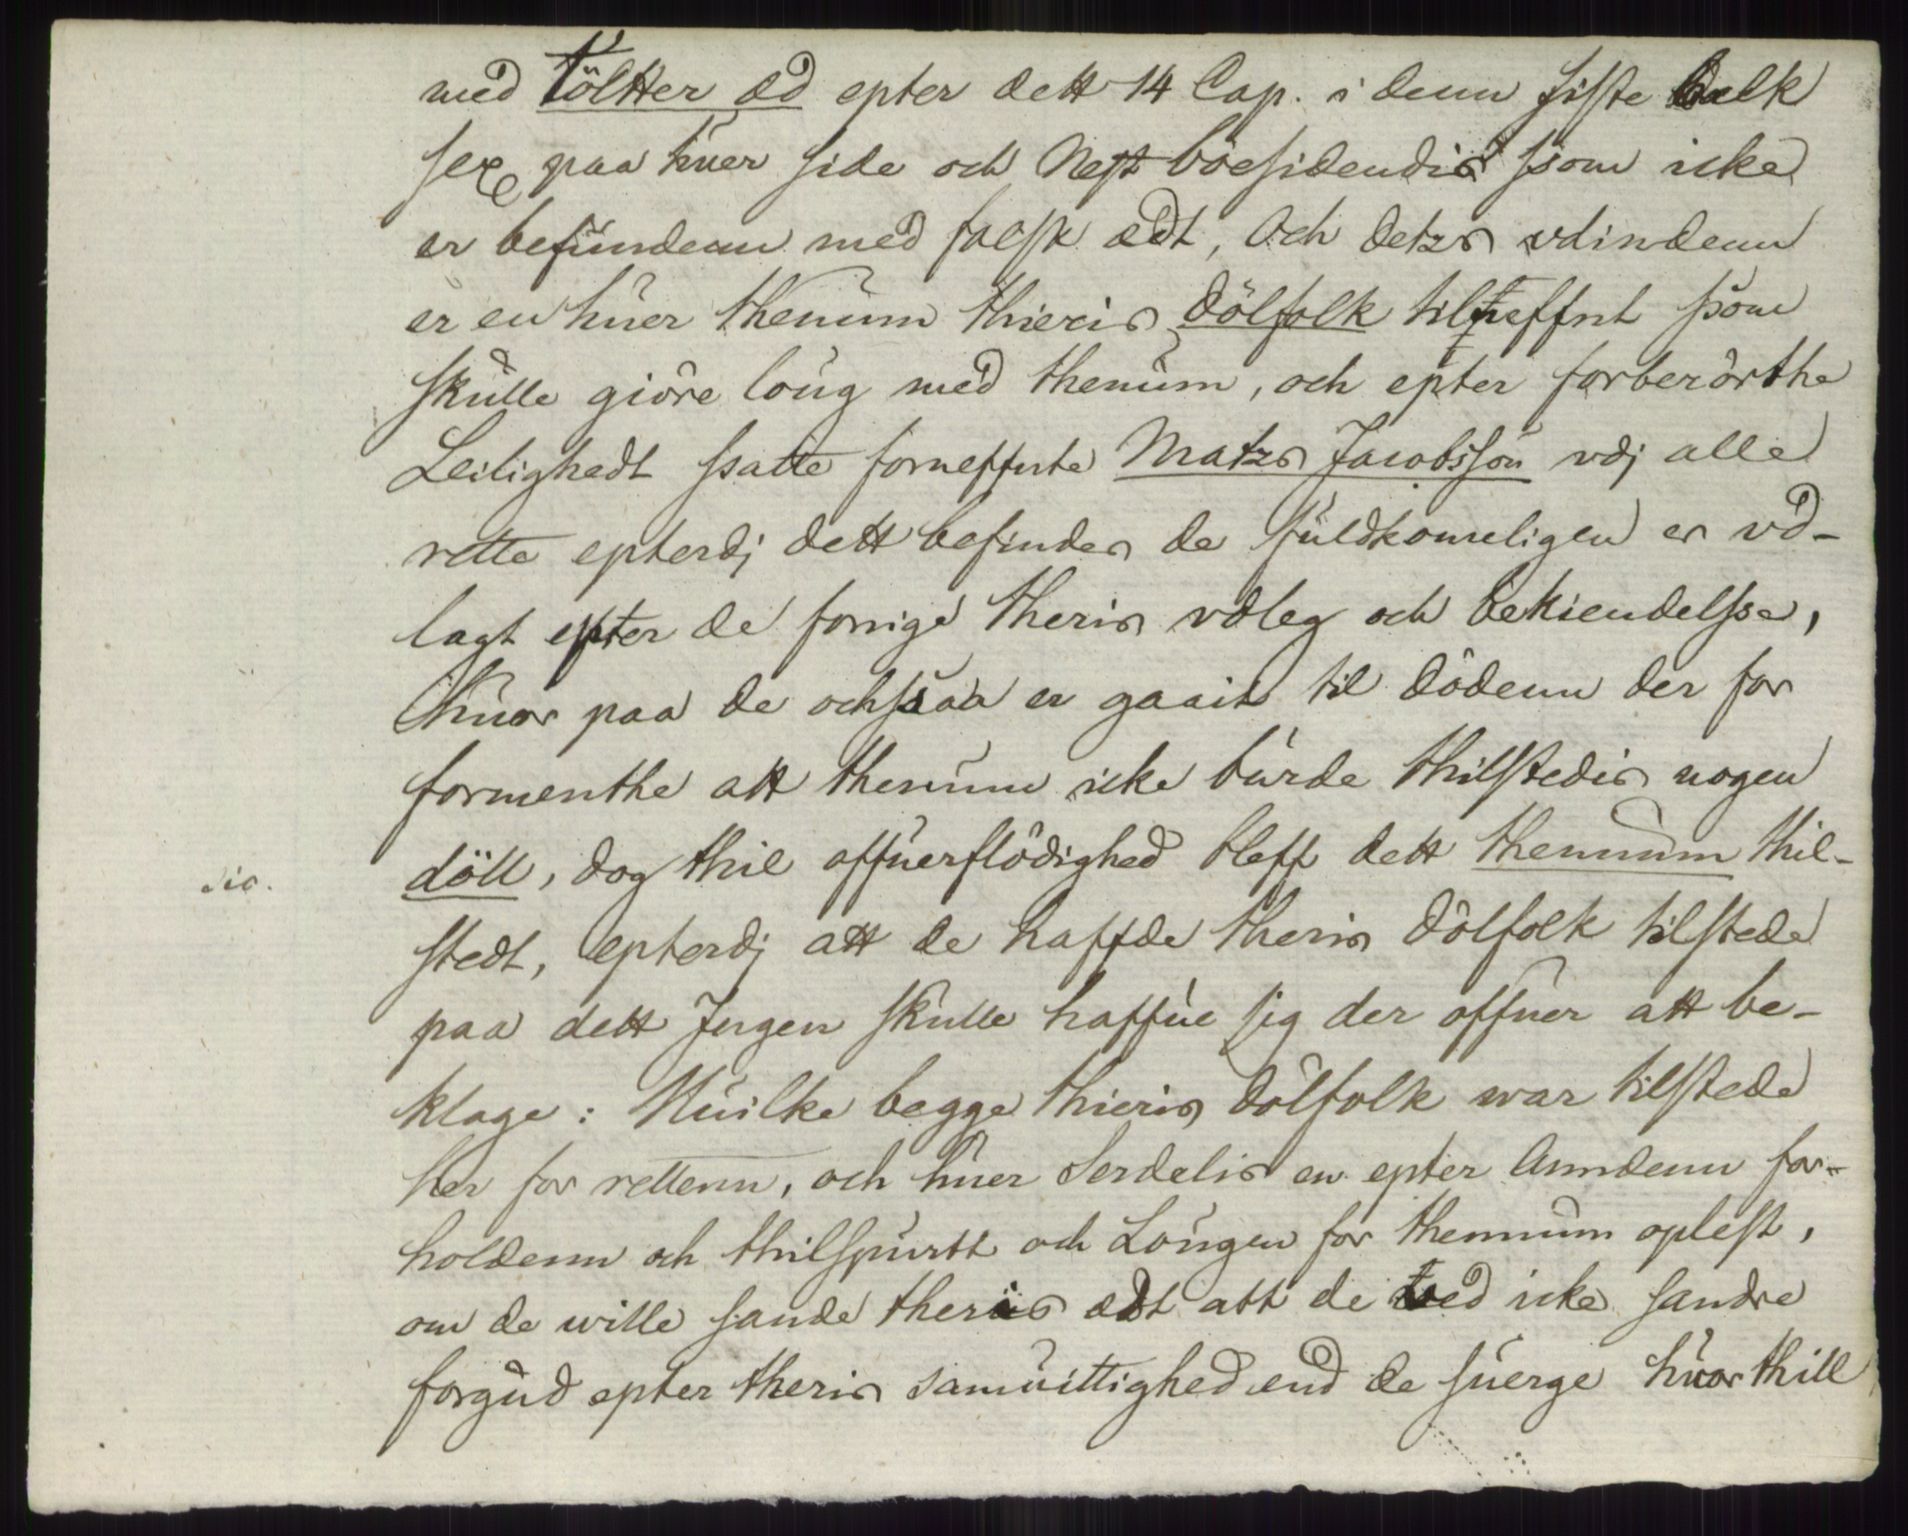 med töltter æd epter dett 14 Cap. i denn siste bælk
sex paa huer side och Nest boesidendis ssom icke
er befundenn med falsk ædt, och detzs vdindenn
er en huer thenum thieris dölfolk tilneffnt ssom
skulle giöre loug med thenum, och epter forberörthe
Leilighedt ssatte forneffnte Matzs Jacobssön vdj alle
rette epterdj dett befindes de fuldkomeligen er vd-
lagt epter de forrige theris vdleg och bekiendelsse,
huor paa de ochssaa er gaait til dödenn der for
formenthe att thenum icke burde thilstedis nogen
döll, dog thil offuerflödighed bleff dett thennum thil-
sic.
stedt, epterdj att de haffde theris dölfolk tilstede
paa dett Jngen skulle haffue sig der offuer att be-
klage: Huilke begge thieris dölfolk war tilstede
her for rettenn, och huer serdelis en epter Anndenn for-
holdenn och thilspurtt och Lougen for thennum oplest,
om de wille sande theris ædt att de wed icke sandre
forgud epter theris samuittighed end de suerge huor thill